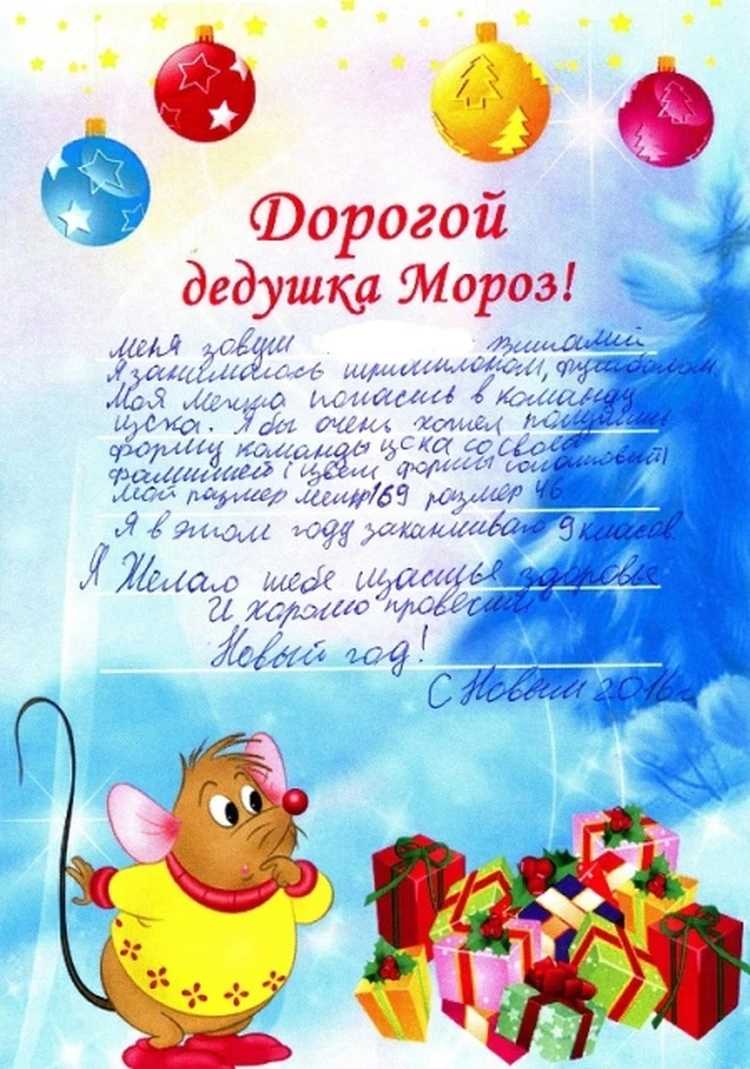 Дорогой
дедушка Мороз!
Меня зовут Виталий
Я занимаюсь триатлоном, футболом.
Моя мечта попасть в команду
цска. Я бы очень хотел получить
форму команды цска со своей
фамилией (цвет формы
мой размер метр 169 размер 46.
Я в этом году заканчиваю 9 класов.
Я Желаю тебе щастья здоровье
И хорошо провести
Новый год!
С Новым 2016 г